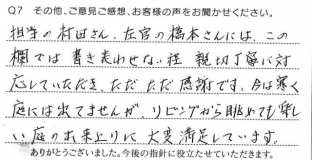 Q7 その他、ご意見ご感想、お客様の声をお聞かせください。
担当の村田さん、左官の橋本さんには、この
欄では書き表わせない程 親切丁寧に対
応していただき、ただただ感謝です。今は寒く
庭には出てませんが、リビングから眺めても楽し
い庭の出来上りに大変満足しています。
ありがとうございました。今後の指針に役立たせていただきます。